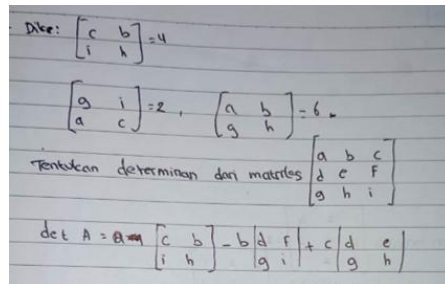 Dike: [c b
i h] = 4
[g i
a c] = 2, [a b
g h] = 6.
Tentukan determinan dari matriks [a b c
d e f
g h i]
det A = a [c b
i h] - b |d f
g i| + c |d e
g h|